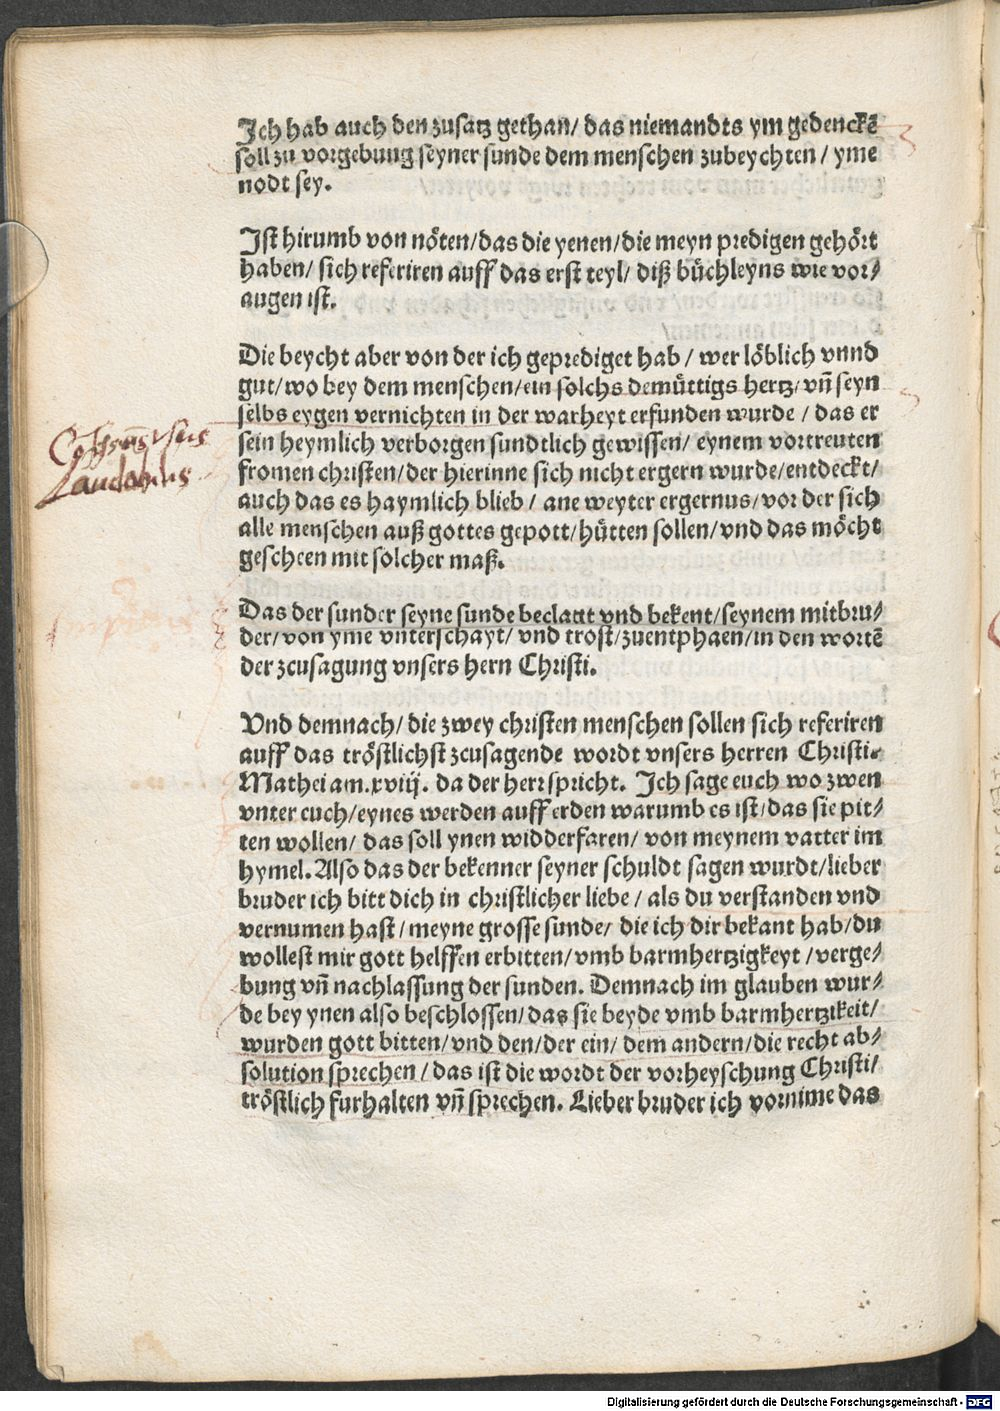 Ich hab auch den zusatz gethan/ das niemandts ym gedenckē
soll zu vorgebung seyner sunde dem menschen zubeychten/ yme
nodt sey.
Ist hirumb von nöten/das die yenen/die meyn predigen gehört
haben/ sich referiren auff das erst teyl/ diß büchleyns wie vor⸗
augen ist.
Die beycht aber von der ich geprediget hab/ wer löblich vnnd
gut/wo bey dem menschen/ein solchs demüttigs hertz/vñ seyn
selbs eygen vernichten in der warheyt erfunden wurde/ das er
sein heymlich verborgen sundtlich gewissen/ eynem vortreuten
fromen christen/der hierinne sich nicht ergern wurde/entdeckt/
auch das es haymlich blieb/ ane weyter ergernus/vor der sich
alle menschen auß gottes gepott/hütten sollen/vnd das möcht
gescheen mit solcher maß.
Laudabilis
Das der sunder seyne sunde beclagt vnd bekent/seynem mitbru⸗
der/von yme vnterschayt/ vnd trost/zuentphaen/in den wortē
der zcusagung vnsers hern Christi.
Vnd demnach/die zwey christen menschen sollen sich referiren
auff das tröstlichst zcusagende wordt vnsers herren Christi.
Mathei am.xviij. da der herr spricht. Ich sage euch wo zwen
vnter euch/eynes werden auff erden warumb es ist/das sie pit⸗
ten wollen/ das soll ynen widderfaren/ von meynem vatter im
hymel. Also das der bekenner seyner schuldt sagen wurdt/lieber
bruder ich bitt dich in christlicher liebe/ als du verstanden vnd
vernumen hast/meyne grosse sunde/ die ich dir bekant hab/du
wollest mir gott helffen erbitten/vmb barmhertzigkeyt/verge⸗
bung vñ nachlassung der sunden. Demnach im glauben wur⸗
de bey ynen also beschlossen/das sie beyde vmb barmhertzikeit/
wurden gott bitten/vnd den/der ein/ dem andern/die recht ab⸗
solution sprechen/das ist die wordt der vorheyschung Christi/
tröstlich furhalten vñ sprechen. Lieber bruder ich vornime das
Digitalisierung gefördert durch die Deutsche Forschungsgemeinschaft - DFG